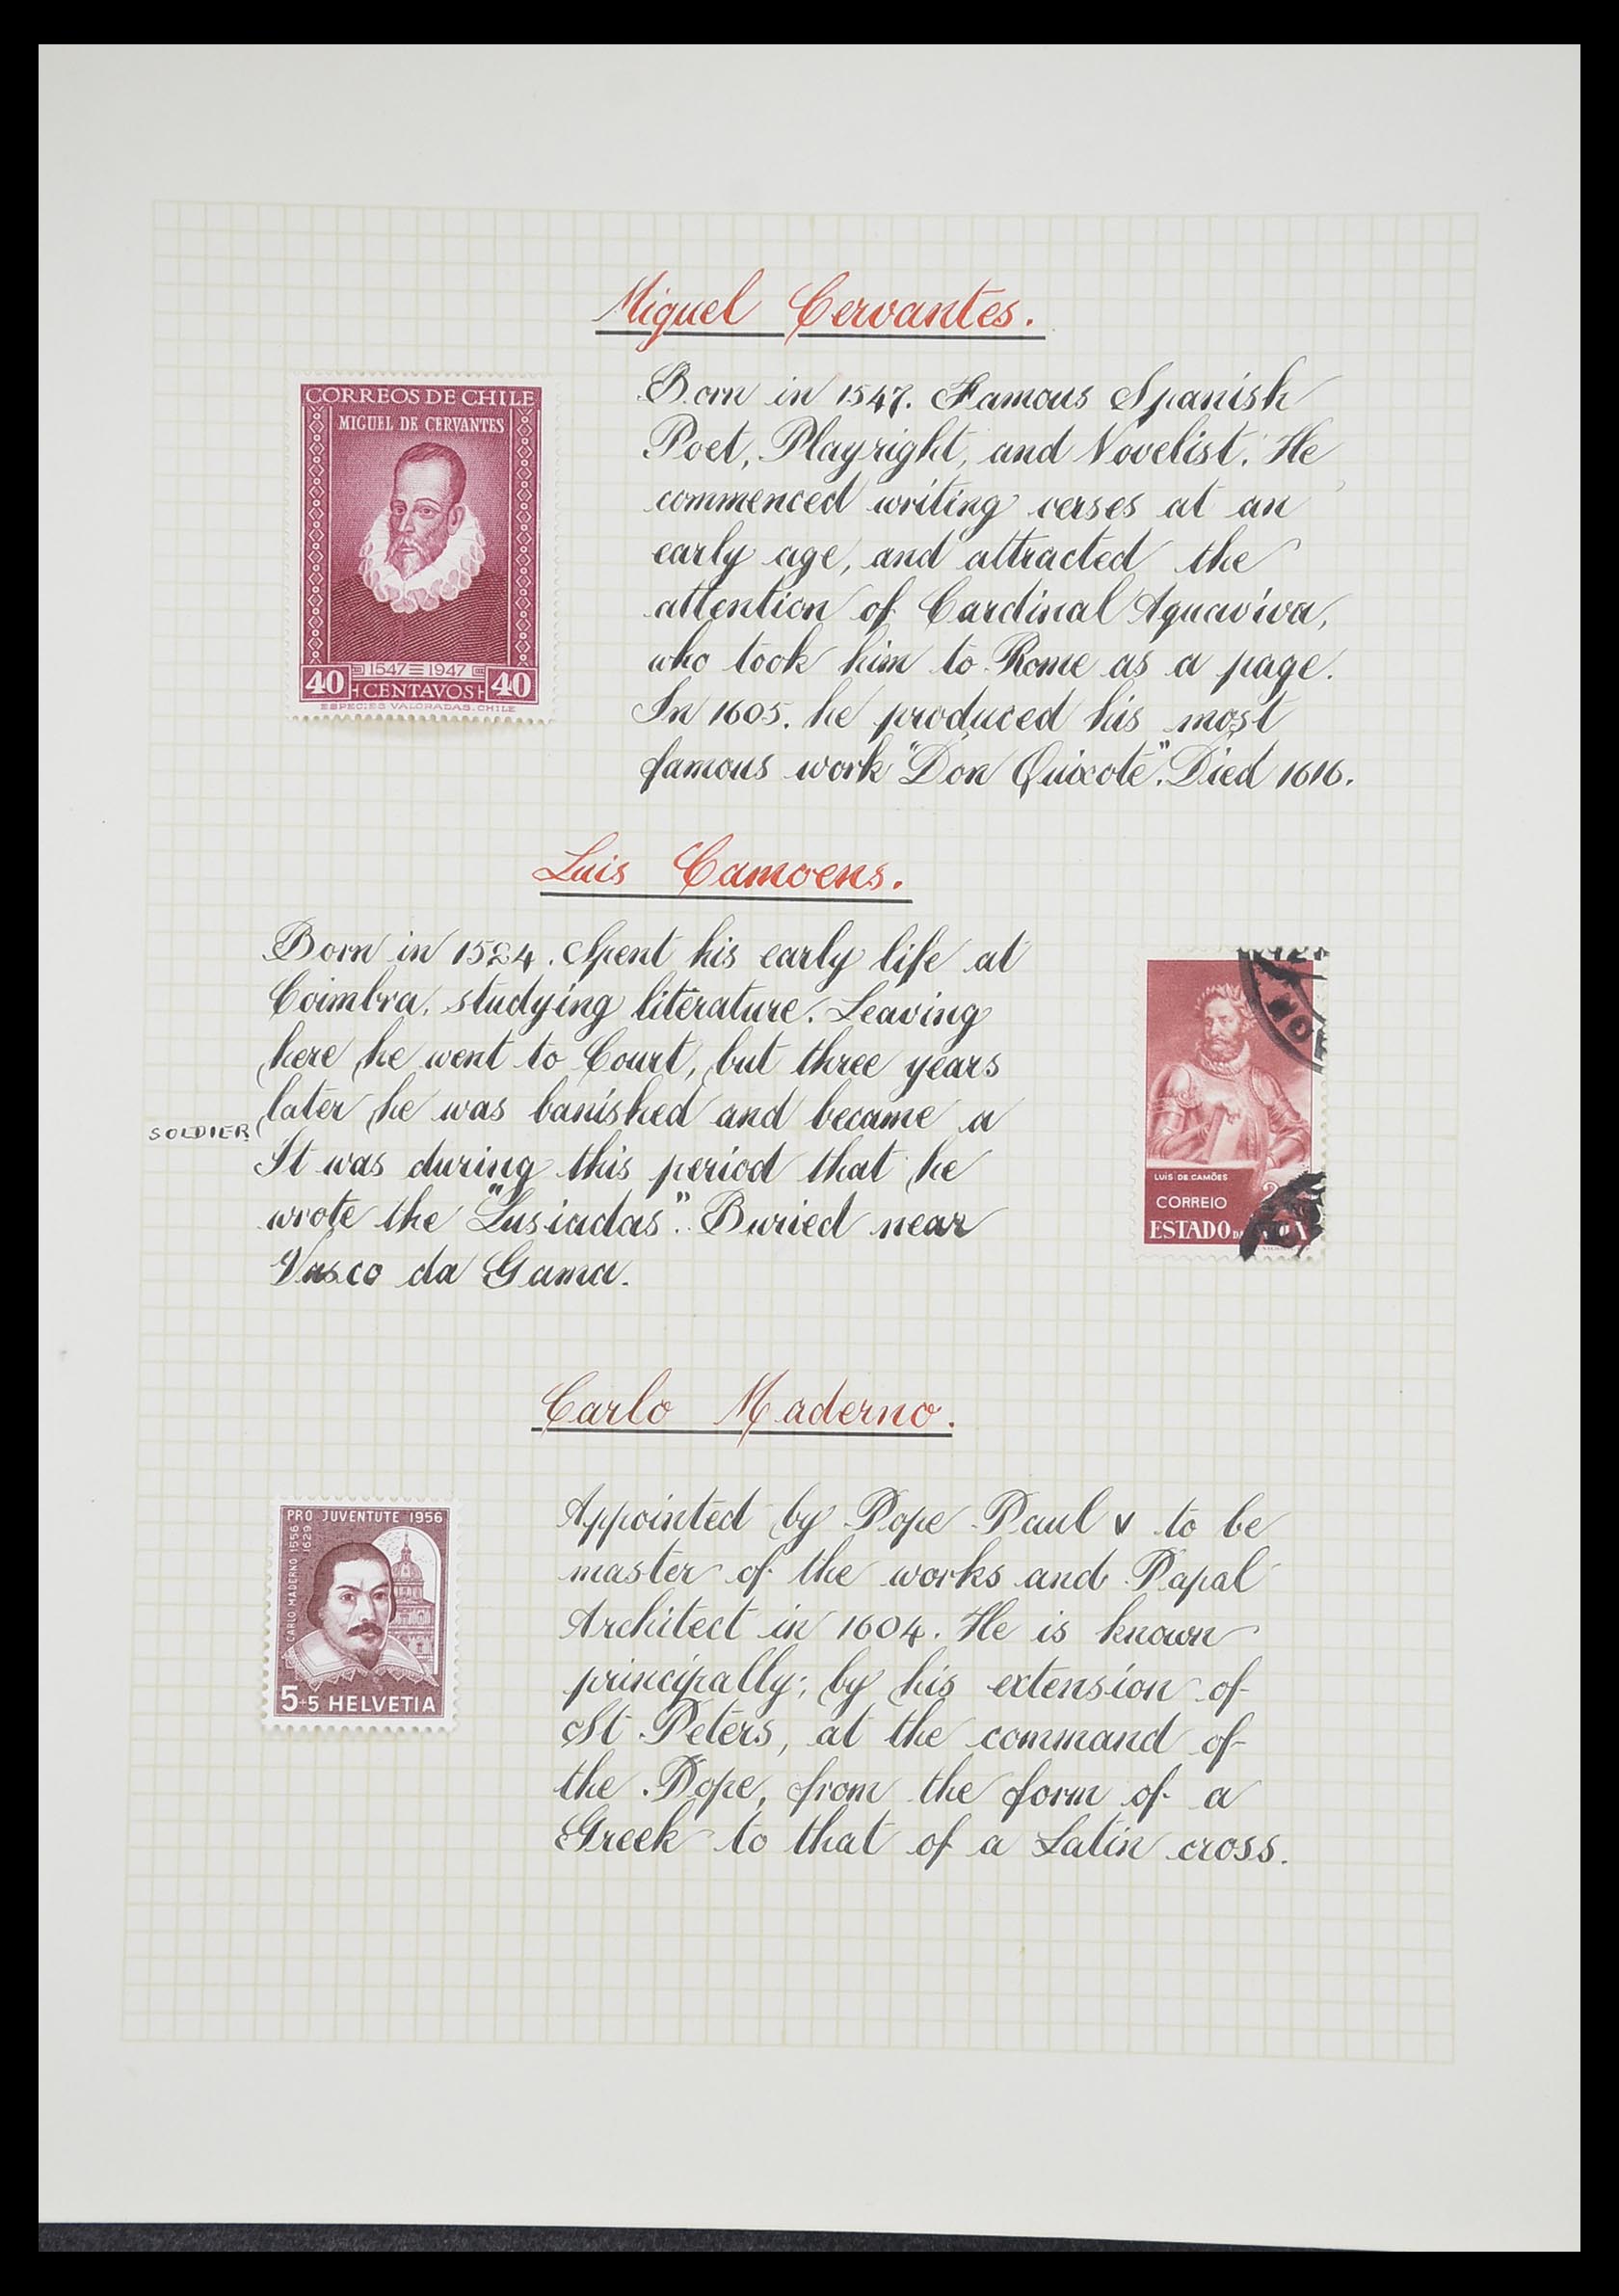 Miguel Cervantes.
CORREOS DE CHILE
MIGUEL DE CERVANTES
1547 1947
40 CENTAVOS 40
ESPECIES VALORADAS. CHILE
Born in 1547. Famous Spanish
Poet, Playright, and Novelist. He
commenced writing verses at an
early age, and attracted the
attention of Cardinal Aquaviva,
who took him to Rome as a page.
In 1605. he produced his most
famous work "Don Quixote". Died 1616.
Luis Camoens.
Born in 1524. Spent his early life at
Coimbra, studying literature. Leaving
here he went to Court, but three years
later he was banished and became a
SOLDIER
It was during this period that he
wrote the "Lusiadas". Buried near
Vasco da Gama.
LUIS DE CAMÕES
CORREIO
ESTADO DA
Carlo Maderno.
PRO JUVENTUTE 1956
CARLO MADERNO 1556
1629
5+5 HELVETIA
Appointed by Pope Paul V to be
master of the works and Papal
Architect in 1604. He is known
principally; by his extension of
St Peters, at the command of
the Pope, from the form of a
Greek to that of a Latin cross.